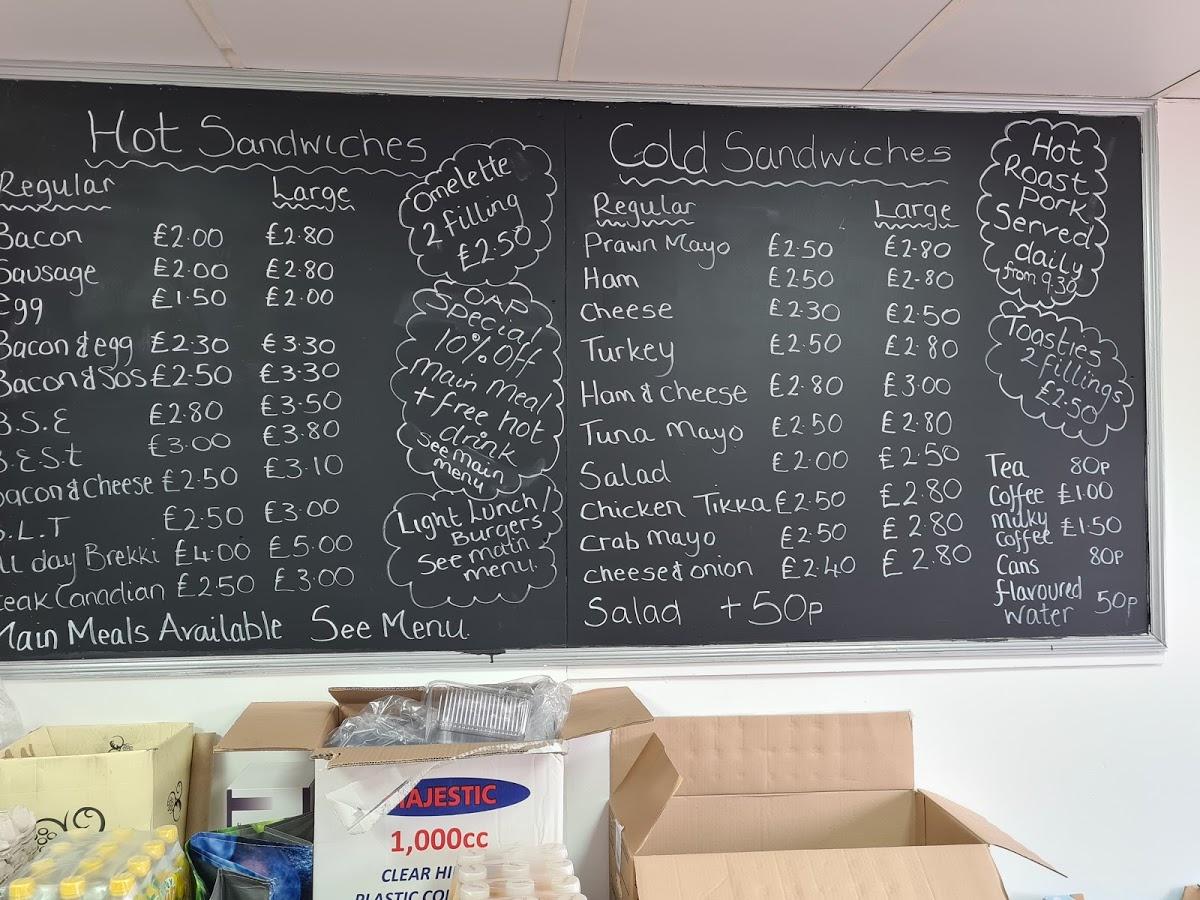 Hot Sandwiches
Regular Large
Bacon £2.00 £2.80
Sausage £2.00 £2.80
Egg £1.50 £2.00
Bacon & egg £2.30 £3.30
Bacon & Sos £2.50 £3.30
B.S.E £2.80 £3.50
B.E.S.t £3.00 £3.80
Bacon & Cheese £2.50 £3.10
B.L.T £2.50 £3.00
All day Brekki £4.00 £5.00
Steak Canadian £2.50 £3.00
Main Meals Available See Menu
Omelette
2 filling
£2.50
OAP
Special
10% off
main meal
+ free hot
drink
See main
menu
Light Lunch/
Burgers
See main
menu.
Cold Sandwiches
Regular Large
Prawn Mayo £2.50 £2.80
Ham £2.50 £2.80
Cheese £2.30 £2.50
Turkey £2.50 £2.80
Ham & Cheese £2.80 £3.00
Tuna Mayo £2.50 £2.80
Salad £2.00 £2.50
Chicken Tikka £2.50 £2.80
Crab Mayo £2.50 £2.80
cheese & onion £2.40 £2.80
Salad +50p
Hot
Roast
Pork
Served
daily
from 9.30
Toasties
2 fillings
£2.50
Tea 80p
Coffee £1.00
milky
coffee £1.50
Cans 80p
flavoured
water 50p
MAJESTIC
1,000cc
CLEAR
PLASTIC